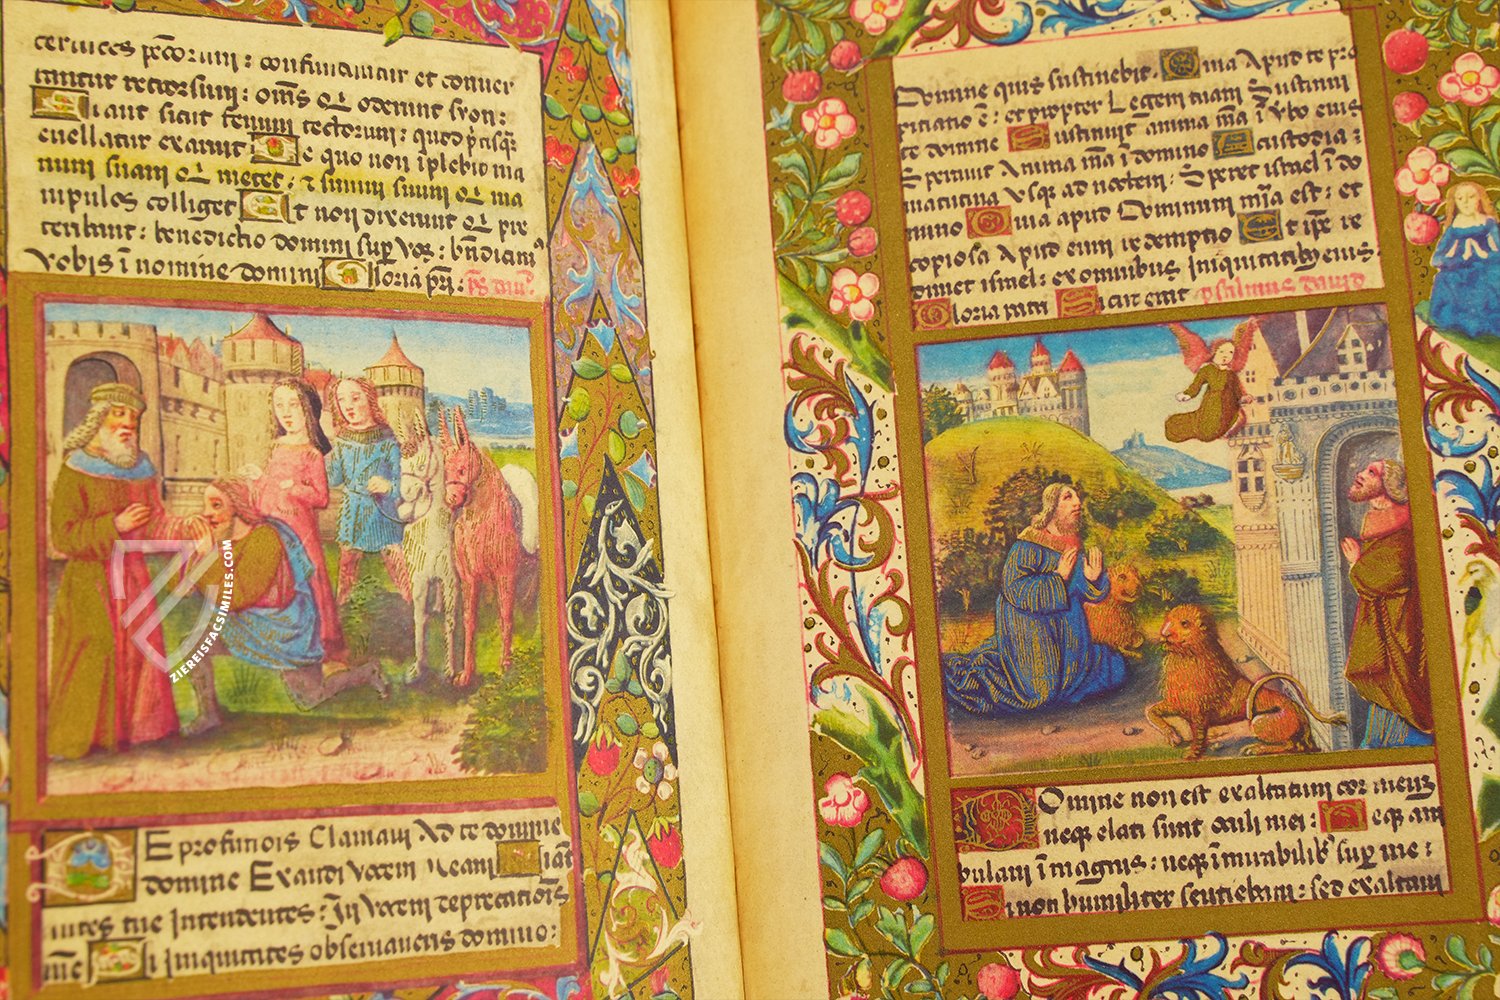 cervices peccorum: confundantur et conver
tantur retrorsum: oms q oderunt syon:
Fiant sicut fenum tectorum: quod prisq
euellatur exaruit De quo non iplebit ma
num suam q metet: & sinum suum q ma
nipulos colliget Et non dixerunt q pre
teribant: benedictio domini sup vos: bndicim
vobis i nomine domini Gloria pri: ps dd.
De profundis Clamavi Ad te domine
domine Exaudi vocem meam Fiat
aures tue Intendentes: In vocem deprecationis
mee Si Iniquitates observaveris domine:
ZIEREISFACSIMILES.COM
Domine quis sustinebit. Quia Apud te pro
pitiatio e: et propter Legem tuam Sustinui
te domine Sustinuit anima ma i vbo eius
Speravit Anima ma i domino A custodia
matutina Vsq ad noctem: Speret israel i do
mino Quia apud Dominum mia est: et
copiosa Apud eum redemptio Et ipe re
dimet israel: ex omnibus Iniquitatib eius.
Gloria patri Sicut erat psalmus david
Domine non est exaltatum cor meum
neq elati sunt oculi mei: Neq am
bulavi i magnis: neq i mirabilib sup me:
Si non humiliter sentiebam: sed exaltavi